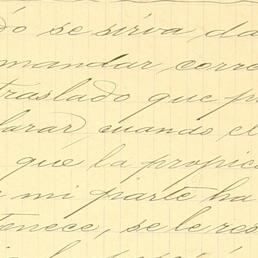 dó se sirva da
mandar, corre
traslado que p
larar, cuando el
que la propie
mi parte ha
tenece, se le res